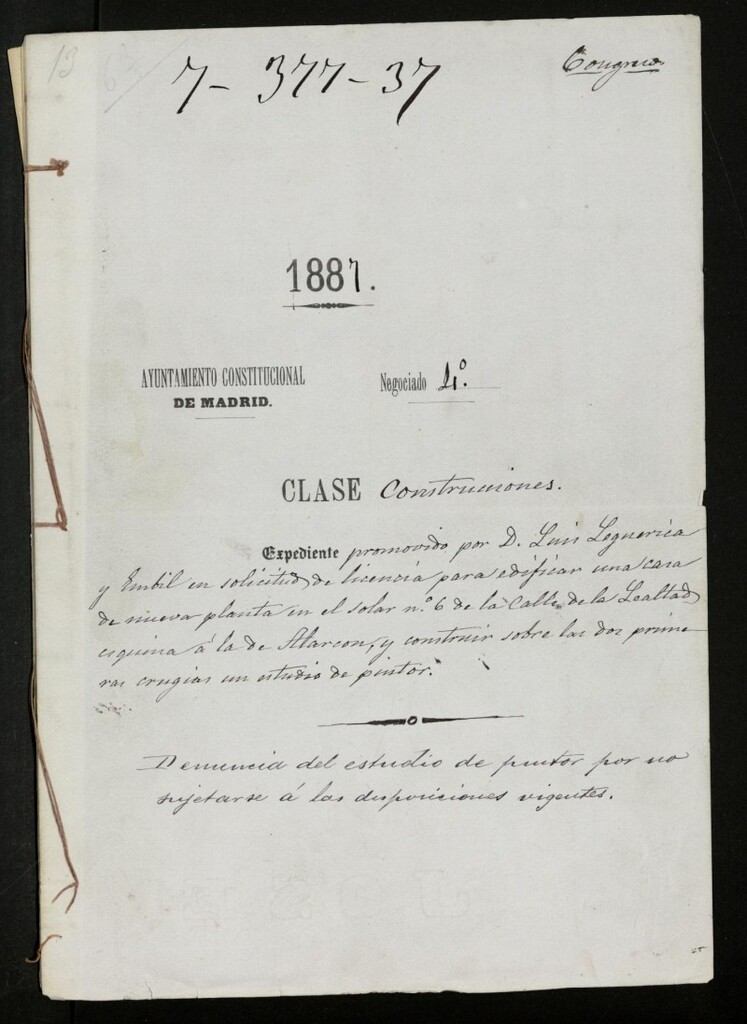 13
7-377-37
Congreso
1887.
AYUNTAMIENTO CONSTITUCIONAL
DE MADRID.
Negociado 4º.
CLASE Construciones.
Expediente promovido por D. Luis Leguerica
y Embil en solicitud de licencia para edificar una casa
de nueva planta en el solar n.º 6 de la Calle de la Lealtad
esquina á la de Alarcon, y construir sobre las dos prime
ras crugias un estudio de pintor.
Denuncia del estudio de pintor por no
sujetarse á las disposiciones vigentes.